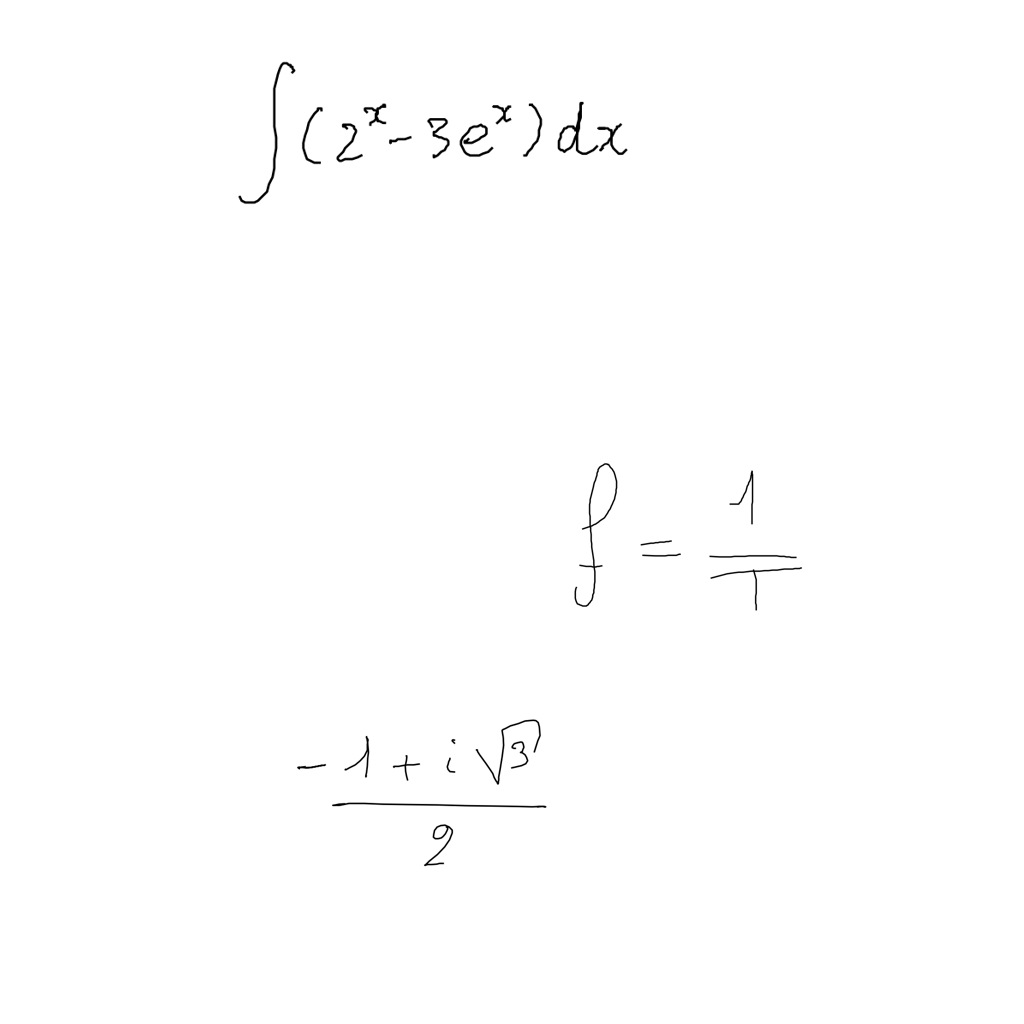 \int (2^x - 3e^x) dx
f = \frac{1}{T}
\frac{-1 + i\sqrt{3}}{2}